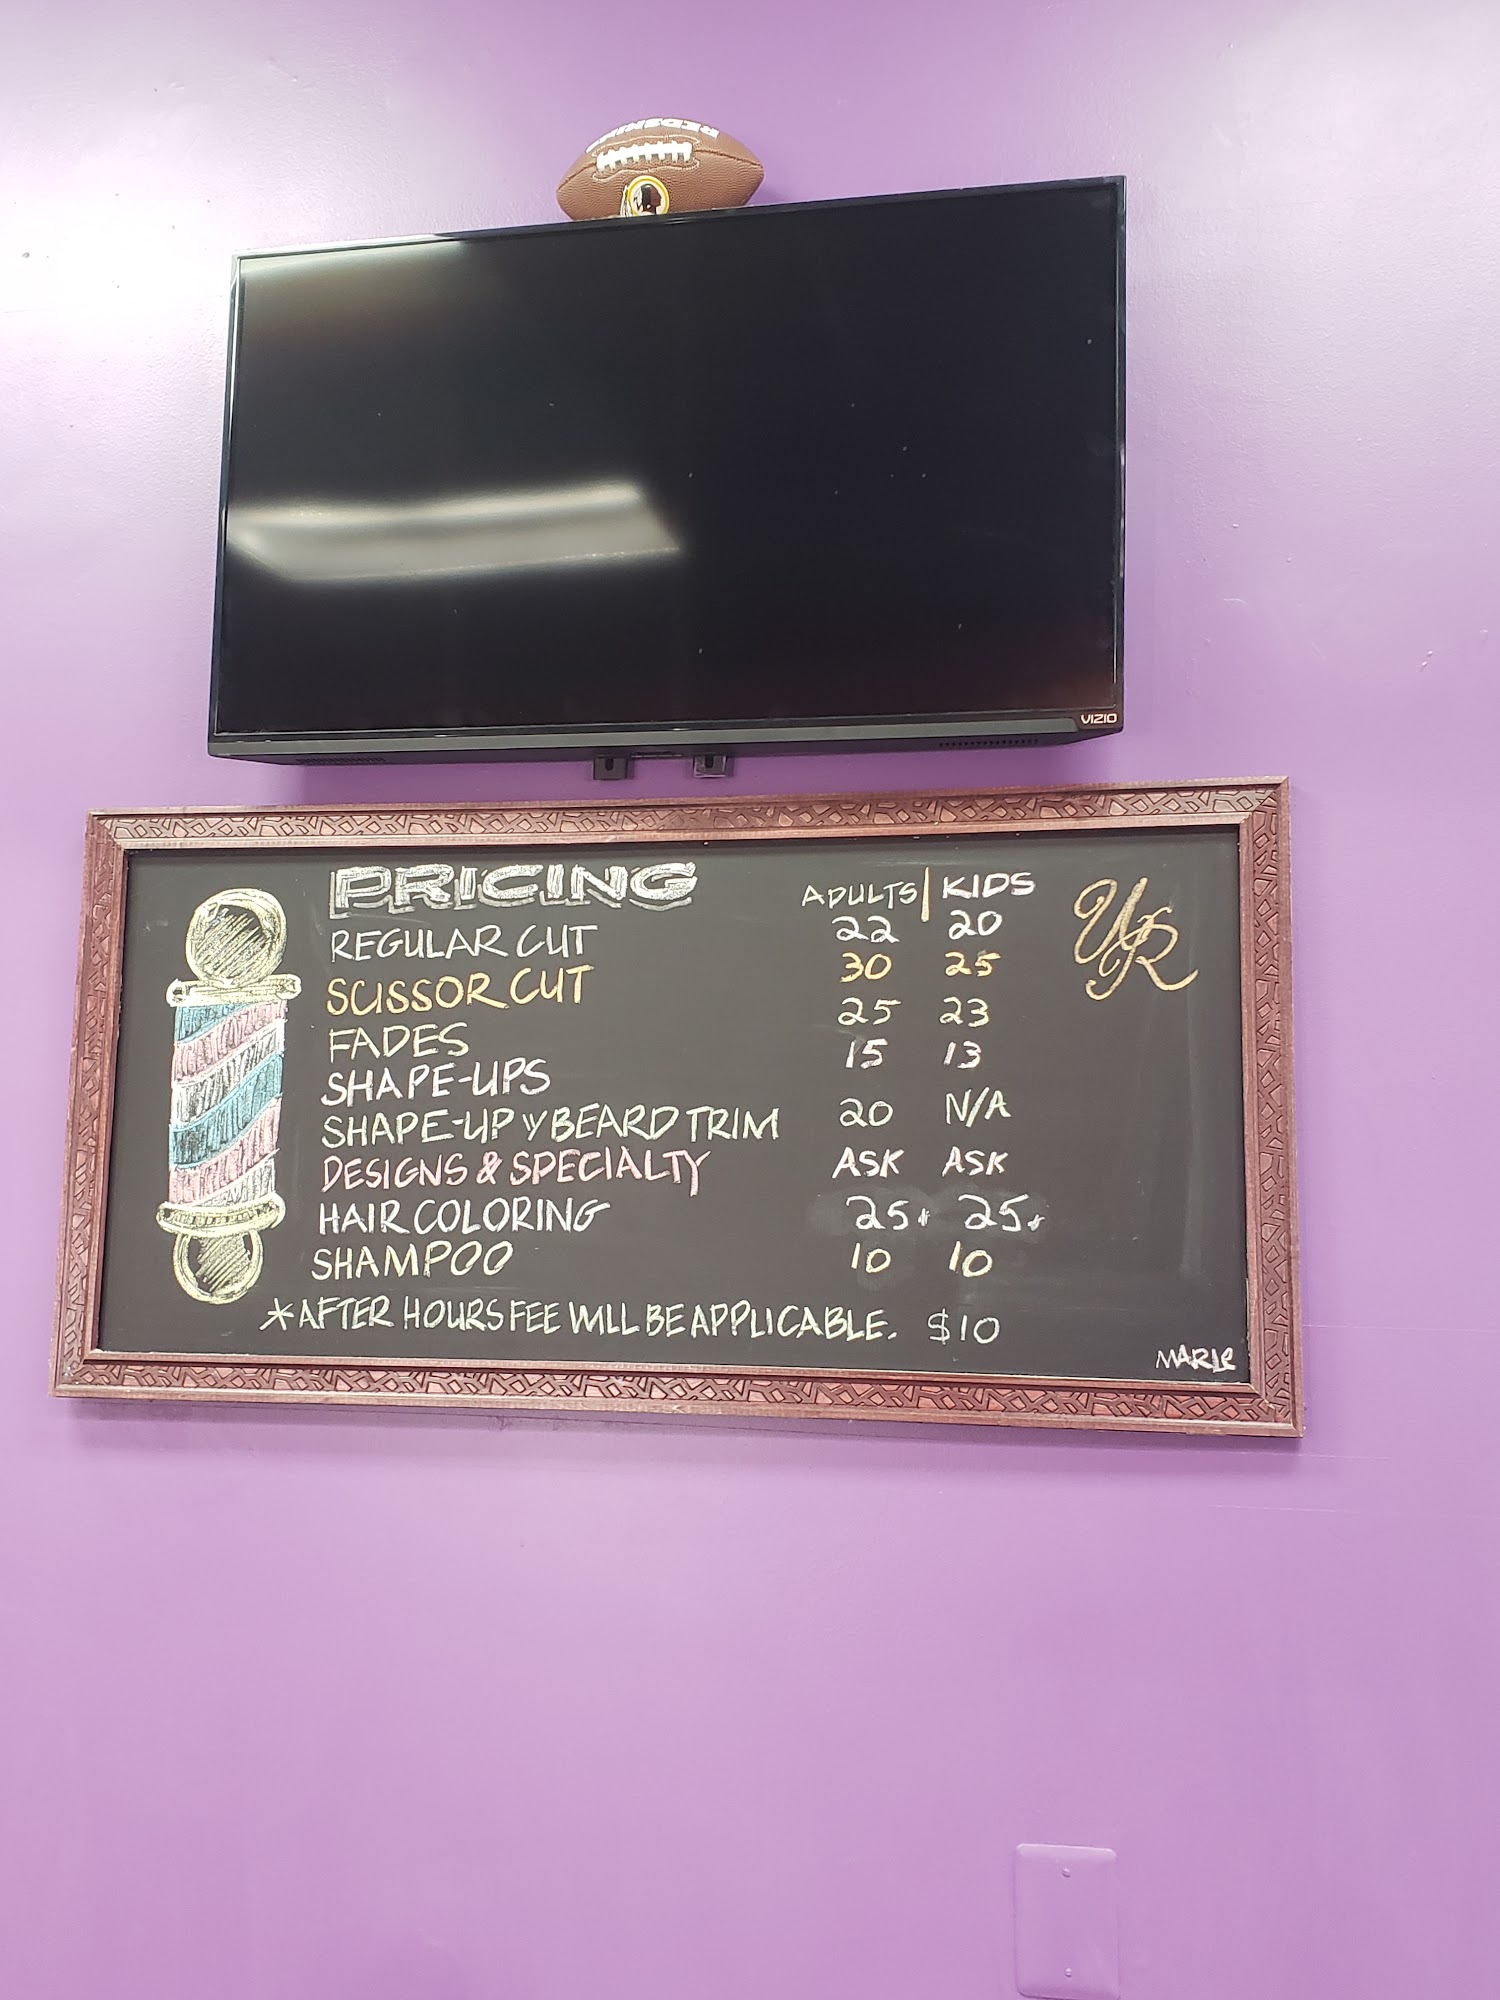 REDSKINS
VIZIO
PRICING ADULTS | KIDS
REGULAR CUT 22 20
SCISSOR CUT 30 25
FADES 25 23
SHAPE-UPS 15 13
SHAPE-UP w/ BEARD TRIM 20 N/A
DESIGNS & SPECIALTY ASK ASK
HAIR COLORING 25+ 25+
SHAMPOO 10 10
*AFTER HOURS FEE WILL BE APPLICABLE. $10